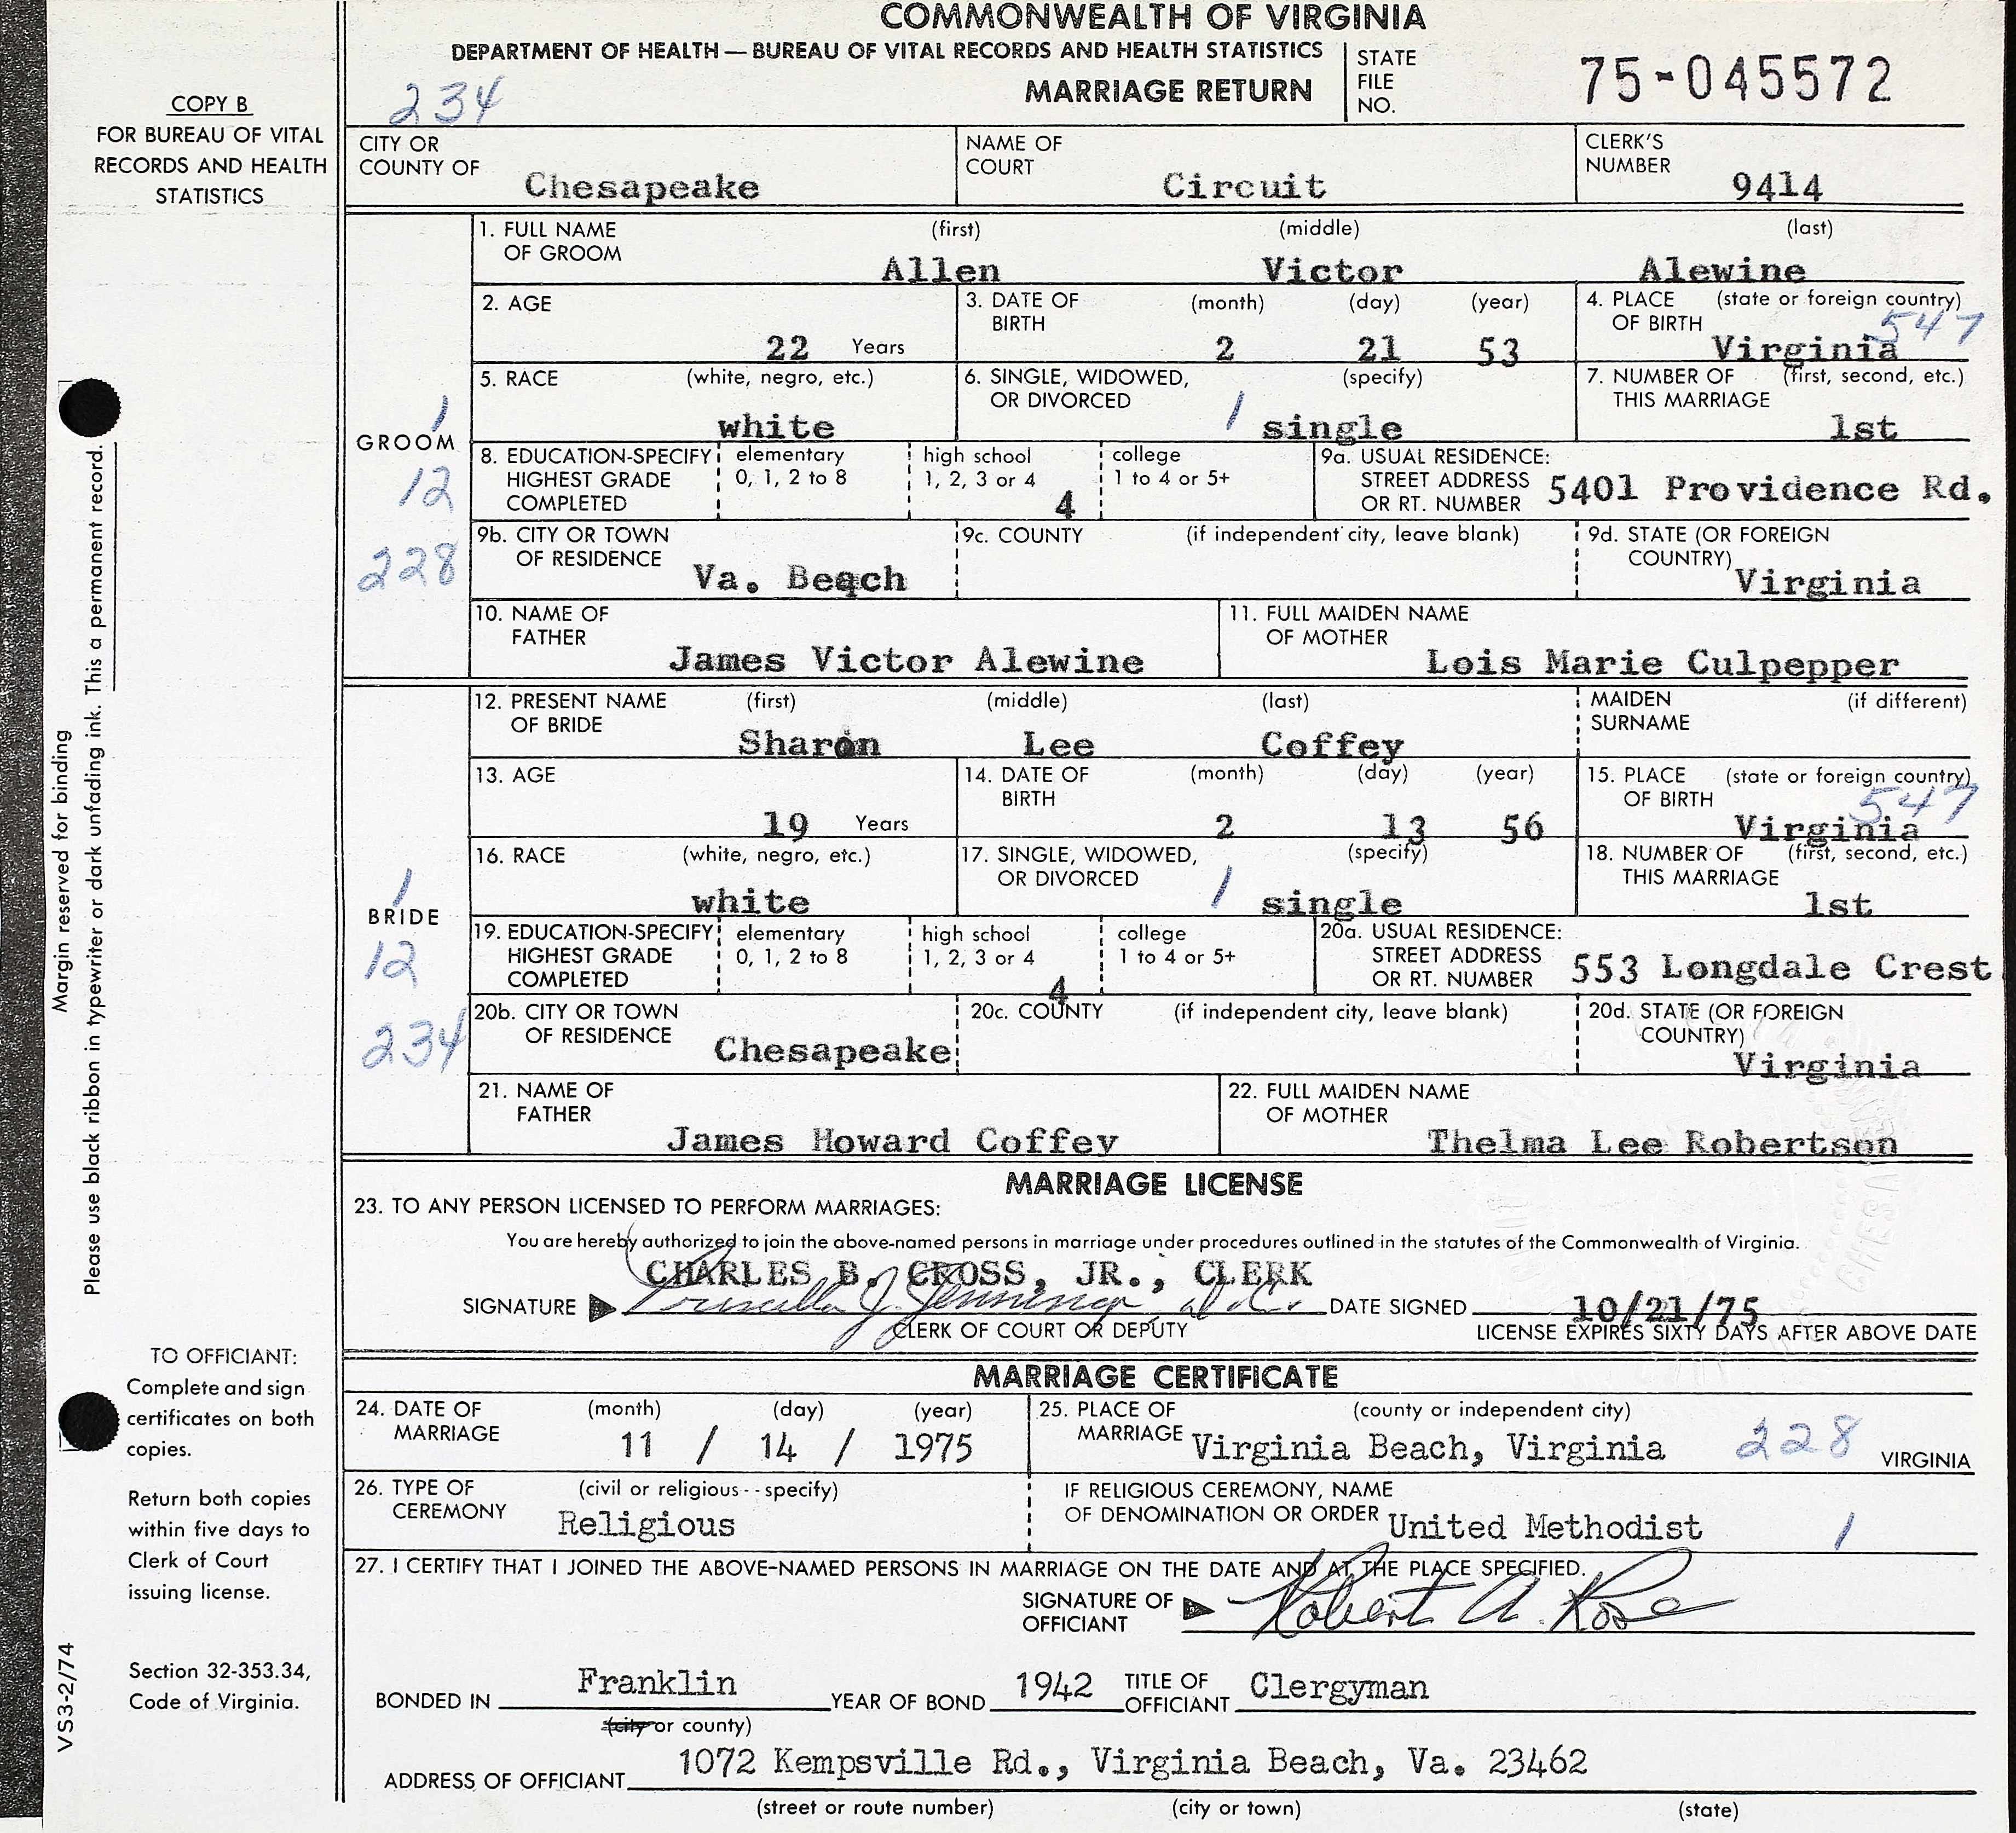 COMMONWEALTH OF VIRGINIA
DEPARTMENT OF HEALTH — BUREAU OF VITAL RECORDS AND HEALTH STATISTICS
MARRIAGE RETURN
STATE FILE NO. 75-045572
234
COPY B
FOR BUREAU OF VITAL
RECORDS AND HEALTH
STATISTICS
CITY OR COUNTY OF Chesapeake
NAME OF COURT Circuit
CLERK'S NUMBER 9414
GROOM
1
12
228
1. FULL NAME OF GROOM (first) (middle) (last)
Allen Victor Alewine
2. AGE 22 Years
3. DATE OF BIRTH (month) (day) (year)
2 21 53
4. PLACE OF BIRTH (state or foreign country)
Virginia 547
5. RACE (white, negro, etc.)
white
6. SINGLE, WIDOWED, OR DIVORCED (specify)
1 single
7. NUMBER OF THIS MARRIAGE (first, second, etc.)
1st
8. EDUCATION-SPECIFY HIGHEST GRADE COMPLETED
elementary 0, 1, 2 to 8
high school 1, 2, 3 or 4
4
college 1 to 4 or 5+
9a. USUAL RESIDENCE: STREET ADDRESS OR RT. NUMBER 5401 Providence Rd.
9b. CITY OR TOWN OF RESIDENCE Va. Beach
9c. COUNTY (if independent city, leave blank)
9d. STATE (OR FOREIGN COUNTRY) Virginia
10. NAME OF FATHER James Victor Alewine
11. FULL MAIDEN NAME OF MOTHER Lois Marie Culpepper
BRIDE
1
12
234
12. PRESENT NAME OF BRIDE (first) (middle) (last)
Sharon Lee Coffey
MAIDEN SURNAME (if different)
13. AGE 19 Years
14. DATE OF BIRTH (month) (day) (year)
2 13 56
15. PLACE OF BIRTH (state or foreign country)
Virginia 547
16. RACE (white, negro, etc.)
white
17. SINGLE, WIDOWED, OR DIVORCED (specify)
1 single
18. NUMBER OF THIS MARRIAGE (first, second, etc.)
1st
19. EDUCATION-SPECIFY HIGHEST GRADE COMPLETED
elementary 0, 1, 2 to 8
high school 1, 2, 3 or 4
4
college 1 to 4 or 5+
20a. USUAL RESIDENCE: STREET ADDRESS OR RT. NUMBER 553 Longdale Crest
20b. CITY OR TOWN OF RESIDENCE Chesapeake
20c. COUNTY (if independent city, leave blank)
20d. STATE (OR FOREIGN COUNTRY) Virginia
21. NAME OF FATHER James Howard Coffey
22. FULL MAIDEN NAME OF MOTHER Thelma Lee Robertson
MARRIAGE LICENSE
23. TO ANY PERSON LICENSED TO PERFORM MARRIAGES:
You are hereby authorized to join the above-named persons in marriage under procedures outlined in the statutes of the Commonwealth of Virginia.
CHARLES B. CROSS, JR., CLERK
SIGNATURE Priscilla J. Jennings, d.c. DATE SIGNED 10/21/75
CLERK OF COURT OR DEPUTY
LICENSE EXPIRES SIXTY DAYS AFTER ABOVE DATE
MARRIAGE CERTIFICATE
24. DATE OF MARRIAGE (month) (day) (year)
11 / 14 / 1975
25. PLACE OF MARRIAGE (county or independent city)
Virginia Beach, Virginia 228 VIRGINIA
26. TYPE OF CEREMONY (civil or religious - - specify)
Religious
IF RELIGIOUS CEREMONY, NAME OF DENOMINATION OR ORDER United Methodist 1
27. I CERTIFY THAT I JOINED THE ABOVE-NAMED PERSONS IN MARRIAGE ON THE DATE AND AT THE PLACE SPECIFIED.
SIGNATURE OF OFFICIANT Robert A. Rose
BONDED IN Franklin YEAR OF BOND 1942 TITLE OF OFFICIANT Clergyman
(city or county)
ADDRESS OF OFFICIANT 1072 Kempsville Rd., Virginia Beach, Va. 23462
(street or route number) (city or town) (state)
Margin reserved for binding
Please use black ribbon in typewriter or dark unfading ink. This a permanent record.
TO OFFICIANT:
Complete and sign
certificates on both
copies.
Return both copies
within five days to
Clerk of Court
issuing license.
Section 32-353.34,
Code of Virginia.
VS3-2/74